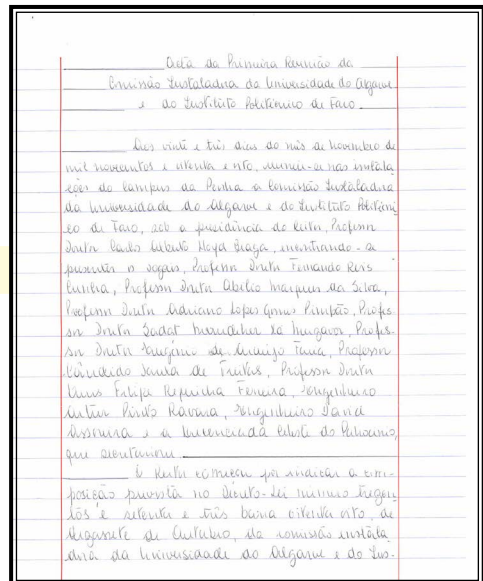 Acta da Primeira Reunião da
Comissão Instaladora da Universidade do Algarve
e do Instituto Politécnico de Faro
Aos vinte e três dias do mês de Novembro de
mil novecentos e oitenta e oito, reuniu-se nas instala
ções do Campus da Penha a Comissão Instaladora
da Universidade do Algarve e do Instituto Politécni
co de Faro, sob a presidência do Reitor, Professor
Doutor Carlos Alberto Lloyd Braga, encontrando-se
presentes os vogais, Professor Doutor Fernando Reis
Cunha, Professor Doutor Abílio Marques da Silva,
Professor Doutor Adriano Lopes Gomes Pimpão, Profes
sor Doutor Sadat Muzavor, Profes-
sor Doutor Eugénio de Araújo Faria, Professor
Cândido Santa de Freitas, Professor Doutor
Luís Filipe Requicha Ferreira, Engenheiro
Artur Pinto Ravara, Engenheiro David
Assoreira e a Licenciada Celeste do Patrocínio,
que secretariou
O Reitor começou por indicar a com-
posição prevista no Decreto-Lei número trezen
tos e setenta e três barra oitenta oito, de
dezassete de Outubro, da comissão instala
dora da Universidade do Algarve e do Ins-